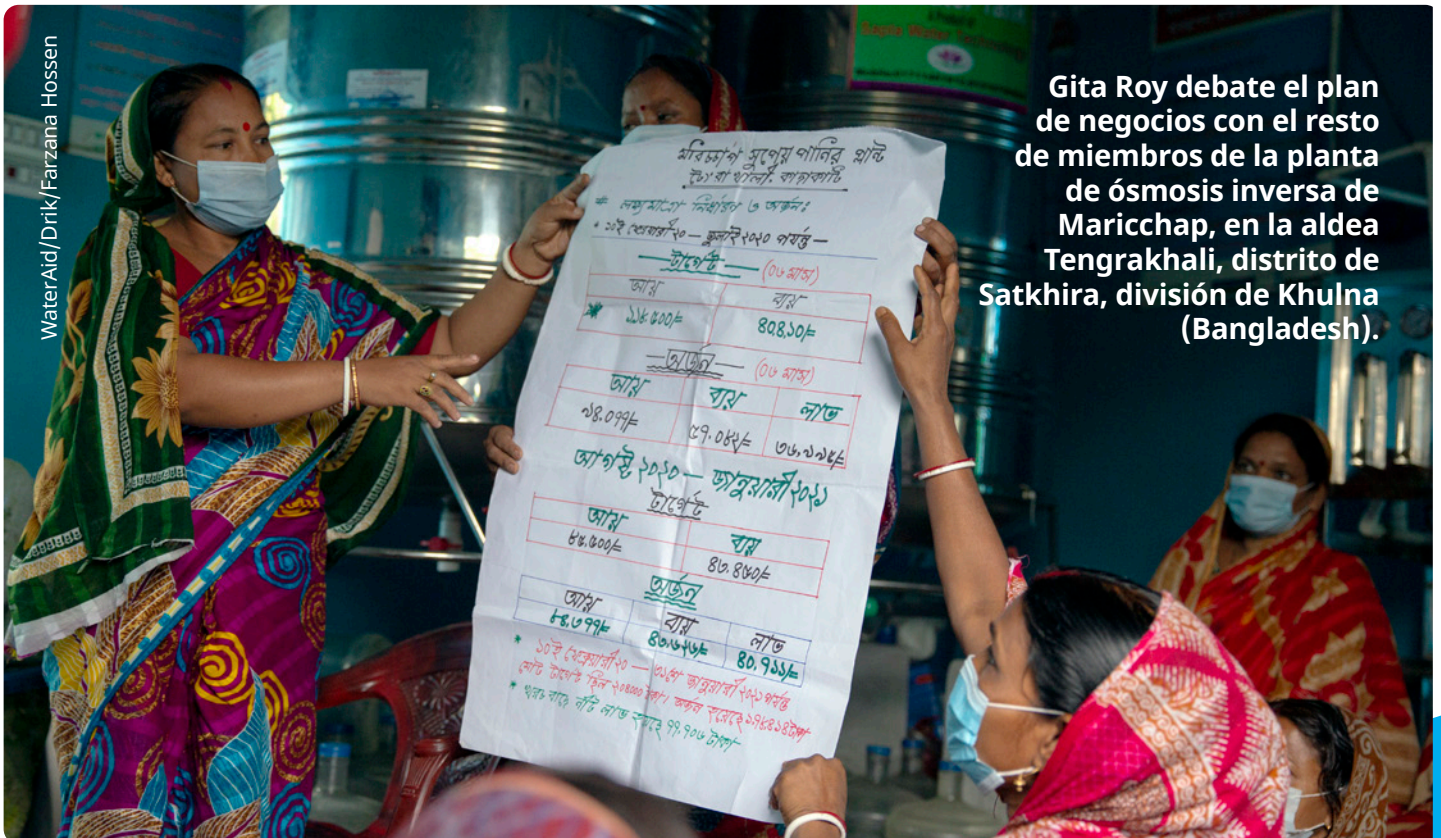 WaterAid/Drik/Farzana Hossen
Gita Roy debate el plan
de negocios con el resto
de miembros de la planta
de ósmosis inversa de
Maricchap, en la aldea
Tengrakhali, distrito de
Satkhira, división de Khulna
(Bangladesh).
মরিচ্চাপ সুপেয় পানির প্লান্ট
কাদাকাটি
# লক্ষ্যমাত্রা নির্ধারন ও অর্জনঃ
* ১০ই ফেব্রুয়ারী ২০ — জুলাই ২০২০ পর্যন্ত —
টার্গেট — (০৬ মাস)
আয় ব্যয়
১১৮৫০০/= ৪০৪১০/=
অর্জন — (০৬ মাস)
আয় ব্যয় লাভ
৯৪.০৭৭/= ৫৭.০৮২/= ৩৬,৯৯৫/=
আগষ্ট ২০২০ — জানুয়ারী ২০২১
টার্গেট
আয় ব্যয়
৮৫.৫০০/= ৪৩.৪৫০/=
অর্জন
আয় ব্যয় লাভ
৪০.৭১১/=
* ১০ই ফেব্রুয়ারী ২০ — ৩১শে জানুয়ারী ২০২১ পর্যন্ত
মোট টার্গেট ছিল ২০৪০০০ টাকা। অর্জন হয়েছে ১৭৮৪১৪ টাকা
* খরচ বাদে নীট লাভ হয়েছে ৭৭.৭০৬ টাকা